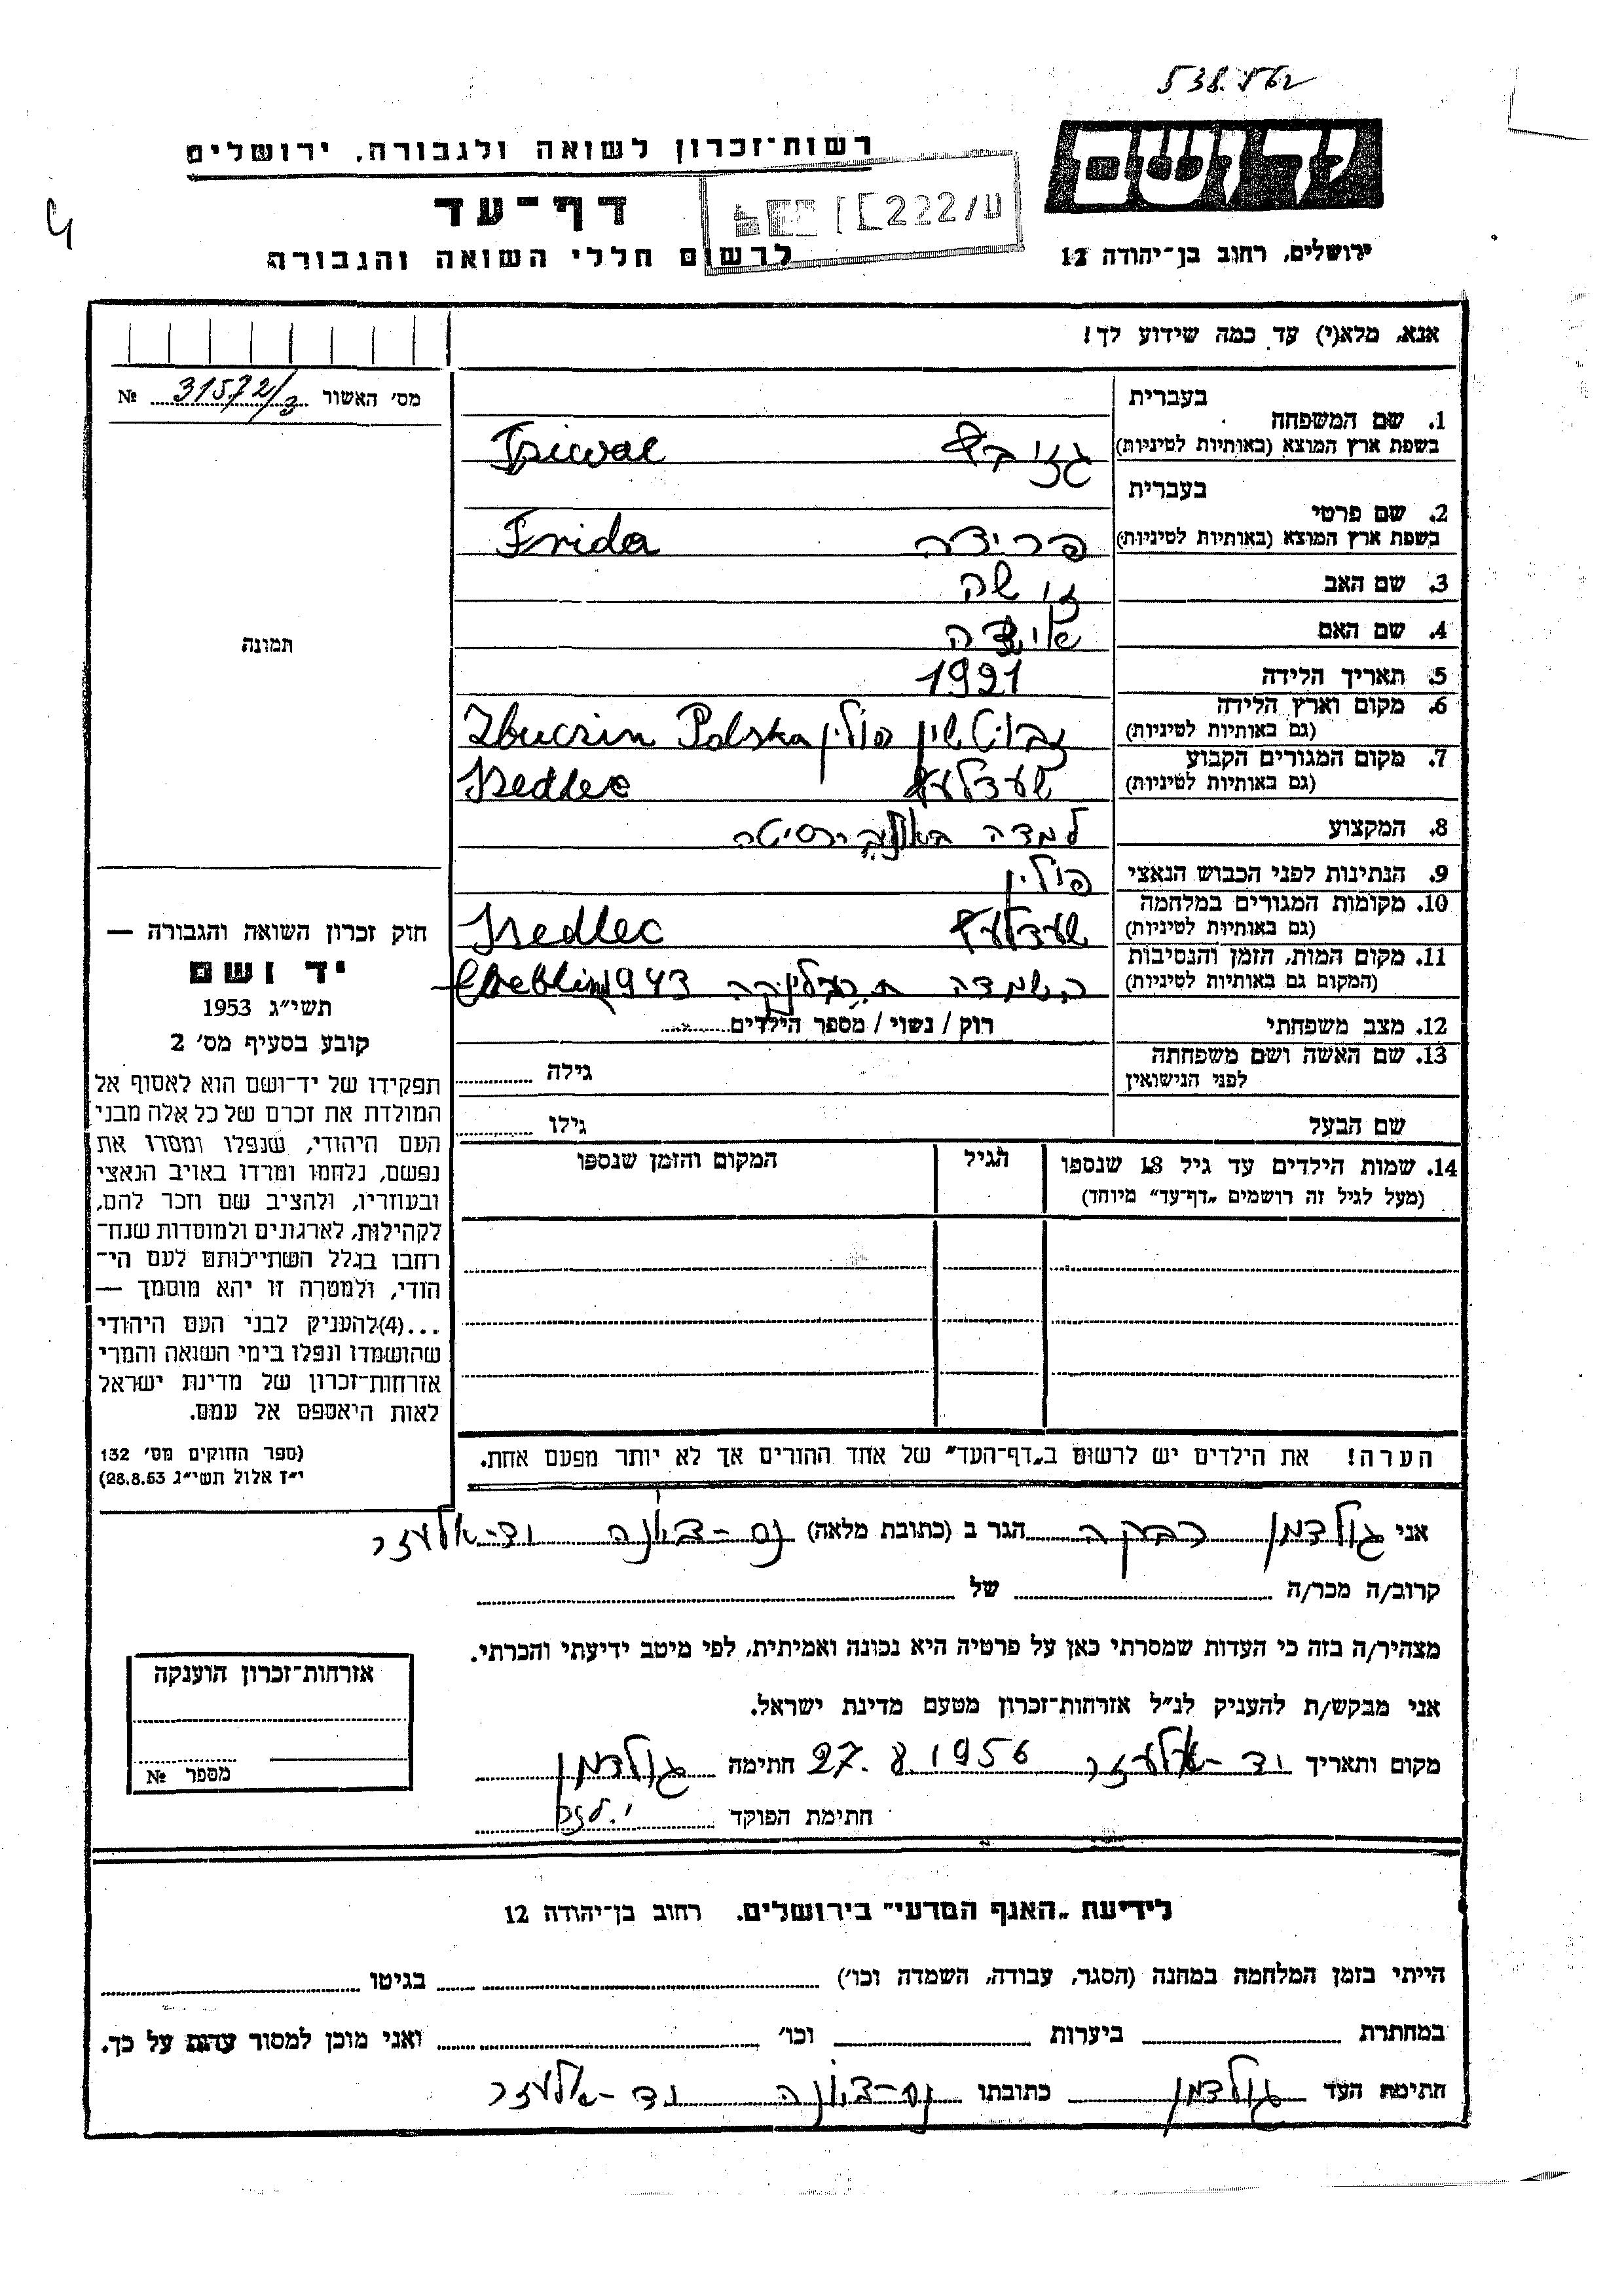 538.862
רשות־זכרון לשואה ולגבורה, ירושלים
יד ושם
דף־עד
222/ש
לרשום חללי השואה והגבורה
ירושלים, רחוב בן־יהודה 12
אנא, מלא(י) עד כמה שידוע לך!
מס׳ האשור 31572/3 №
תמונה
בעברית
1. שם המשפחה
בשפת ארץ המוצא (באותיות לטיניות)
בעברית
2. שם פרטי
פרידה Frida
בשפת ארץ המוצא (באותיות לטיניות)
3. שם האב זישה
4. שם האם
5. תאריך הלידה 1921
6. מקום וארץ הלידה
(גם באותיות לטיניות)
זבוטשין פולין Zbuczin Polska
7. מקום המגורים הקבוע
(גם באותיות לטיניות)
שעדלעץ Sedlec
8. המקצוע למדה באוניברסיטה
9. הנתינות לפני הכבוש הנאצי פולין
10. מקומות המגורים במלחמה
(גם באותיות לטיניות)
שעדלעץ Sedlec
11. מקום המות, הזמן והנסיבות
(המקום גם באותיות לטיניות)
השמדה טרבלינקה 1943
12. מצב משפחתי רוק / נשוי / מספר הילדים
13. שם האשה ושם משפחתה
לפני הנישואין
גילה
שם הבעל גילו
14. שמות הילדים עד גיל 18 שנספו
(מעל לגיל זה רושמים „דף־עד״ מיוחד)
הגיל
המקום והזמן שנספו
הערה! את הילדים יש לרשום ב„דף־העד״ של אחד ההורים אך לא יותר מפעם אחת.
חוק זכרון השואה והגבורה —
יד ושם
תשי״ג 1953
קובע בסעיף מס׳ 2
תפקידו של יד־ושם הוא לאסוף אל
המולדת את זכרם של כל אלה מבני
העם היהודי, שנפלו ומסרו את
נפשם, נלחמו ומרדו באויב הנאצי
ובעוזריו, ולהציב שם וזכר להם,
לקהילות, לארגונים ולמוסדות שנח־
רחבו בגלל השתייכותם לעם הי־
הודי, ולמטרה זו יהא מוסמך —
...(4)להעניק לבני העם היהודי
שהושמדו ונפלו בימי השואה והמרי
אזרחות־זכרון של מדינת ישראל
לאות היאספם אל עמם.
(ספר החוקים מס׳ 132
י״ז אלול תשי״ג 28.8.53)
אני גולדמן רבקה הגר ב (כתובת מלאה) נס-ציונה וד-אלעזר
קרוב/ה מכר/ה של
מצהיר/ה בזה כי העדות שמסרתי כאן על פרטיה היא נכונה ואמיתית, לפי מיטב ידיעתי והכרתי.
אני מבקש/ת להעניק לנ״ל אזרחות־זכרון מטעם מדינת ישראל.
מקום ותאריך וד-אלעזר 27.8.1956 חתימה גולדמן
חתימת הפוקד
אזרחות־זכרון הוענקה
מספר №
לידיעת „האגף המדעי״ בירושלים. רחוב בן־יהודה 12
הייתי בזמן המלחמה במחנה (הסגר, עבודה, השמדה וכו׳) בגיטו
במחתרת ביערות וכו׳ ואני מוכן למסור עדות על כך.
חתימת העד גולדמן כתובתו נס-ציונה וד-אלעזר